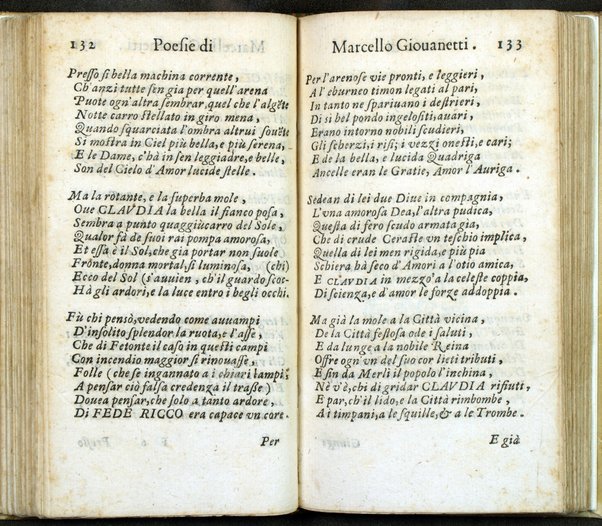 132 Poesie di
Presso sì bella machina corrente,
Ch'anzi tutte sen gia per quell'arena
Puote ogn'altra sembrar quel che l'algẽte
Notte carro stellato in giro mena,
Quando squarciata l'ombra altrui souẽte
Si mostra in Ciel più bella, e più serena,
E le Dame, c'hà in sen leggiadre, e belle,
Son del Cielo d'Amor lucide stelle.
Ma la rotante, e la superba mole,
Oue CLAVDIA la bella il fianco posa,
Sembra a punto quaggiù carro del Sole,
Qualor fà de suoi rai pompa amorosa,
Et essa è il Sol, che già portar non suole
Frõnte, donna mortal, sì luminosa, (chi)
Ecco del Sol (s'auuien, ch'il guardo scoc-
Hà gli ardori, e la luce entro i begli occhi.
Fù chi pensò, vedendo come auuampi
D'insolito splendor la ruota, e l'asse,
Che di Fetonte il caso in questi campi
Con incendio maggior si rinouasse,
Folle (che se ingannato a i chiari lampi,
A pensar ciò falsa credenza il trasse)
Douea pensar, che solo a tanto ardore,
Di FEDE RICCO era capace vn core.
Per
Marcello Giouanetti. 133
Per l'arenose vie pronti, e leggieri,
A l'eburneo timon legati al pari,
In tanto ne spariuano i destrieri,
Di sì bel pondo ingelositi, auari,
Erano intorno nobili scudieri,
Gli scherzi, i risi, i vezzi onesti, e cari;
E de la bella, e lucida Quadriga
Ancelle eran le Gratie, Amor l'Auriga.
Sedean di lei due Diue in compagnia,
L'vna amorosa Dea, l'altra pudica,
Questa di fero scudo armata gia,
Che di crude Ceraste vn teschio implica,
Quella di lei men rigida, e più pia
Schiera hà seco d'Amori a l'otio amica,
E CLAVDIA in mezzo'a la celeste coppia,
Di scienza, e d'amor le forze addoppia.
Ma già la mole a la Città vicina,
De la Città festosa ode i saluti,
E da lunge a la nobile Reina
Offre ogni vn del suo cor lieti tributi,
E sin da Merli il popolo l'inchina,
Nè v'è, chi di gridar CLAVDIA rifiuti,
E par, ch'il lido, e la Città rimbombe,
A i timpani, a le squille, & a le Trombe.
E già